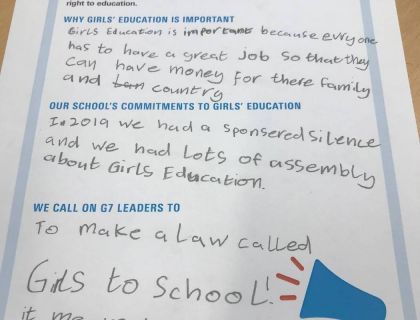 right to education.
WHY GIRLS' EDUCATION IS IMPORTANT
Girls Education is important because evryone
has to have a great job so that they
can have money for there family
and country
OUR SCHOOL'S COMMITMENTS TO GIRLS' EDUCATION
In 2019 we had a sponsered silence
and we had lots of assembly
about Girls Education.
WE CALL ON G7 LEADERS TO
To make a law called
Girls to School!
it